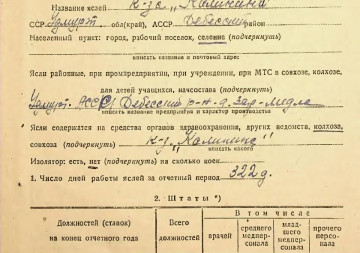 Название яслей к-за „Калинина"
ССР Удмурт. обл(край), АССР Дебесский район
Населенный пункт: город, рабочий поселок, селение (подчеркнуть)
вписать название и почтовый адрес
Если районные, при промпредприятии, при учреждении, при МТС в совхозе, колхозе,
для детей учащихся, начсостава (подчеркнуть)
Удмурт. АССР, Дебесский р-н д. Зар-Медла
вписать название предприятия и характер производства
Если содержатся на средства органов здравоохранения, других ведомств, колхоза,
совхоза (подчеркнуть) к-з „Калинина"
вписать какого
Изолятор: есть, нет (подчеркнуть) на сколько коек
1. Число дней работы яслей за отчетный период 322 д.
2. Штаты *)
Должностей (ставок) на конец отчетного года
Всего должностей
В том числе
врачей
среднего медперсонала
младшего медперсонала
прочего персонала